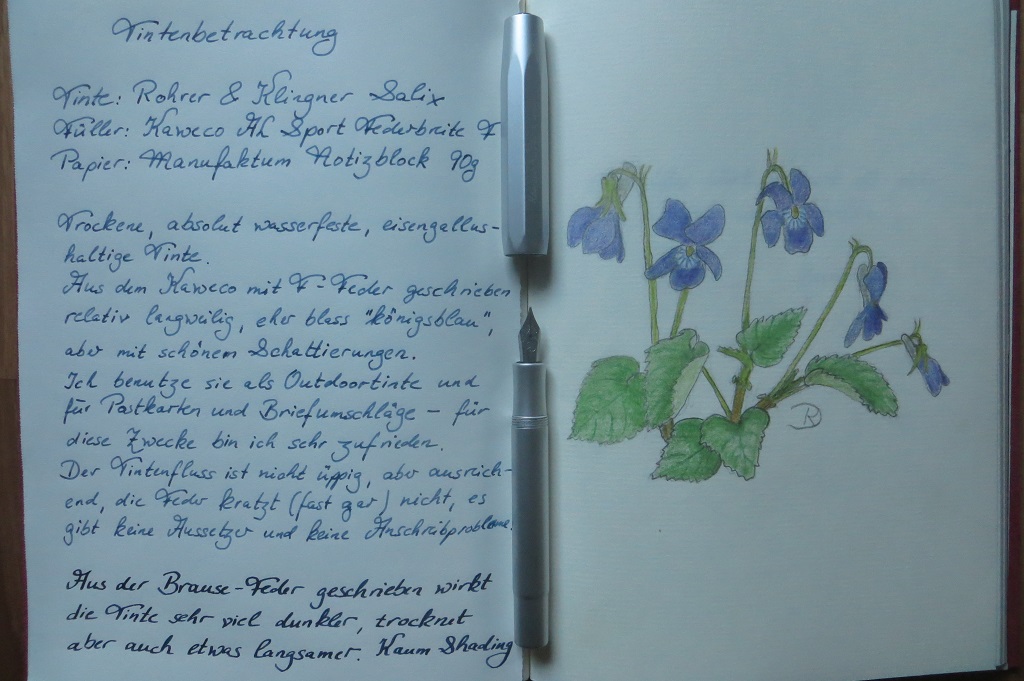 Tintenbetrachtung
Tinte: Rohrer & Klingner Salix
Füller: Kaweco AL Sport Federbreite F
Papier: Manufaktum Notizblock 90g
Trockene, absolut wasserfeste, eisengallus-
haltige Tinte.
Aus dem Kaweco mit F-Feder geschrieben
relativ langweilig, eher blass "königsblau",
aber mit schönem Schattierungen.
Ich benutze sie als Outdoortinte und
für Postkarten und Briefumschläge - für
diese Zwecke bin ich sehr zufrieden.
Der Tintenfluss ist nicht üppig, aber ausreich-
end, die Feder kratzt (fast gar) nicht, es
gibt keine Aussetzer und keine Anschreibprobleme.
Aus der Brause-Feder geschrieben wirkt
die Tinte sehr viel dunkler, trocknet
aber auch etwas langsamer. Kaum Shading